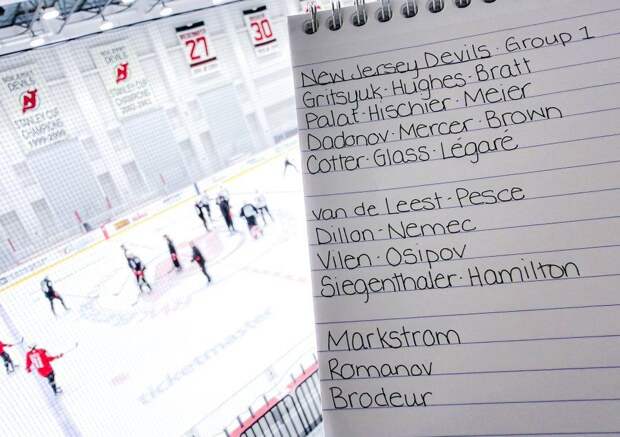 New Jersey Devils · Group 1
Gritsyuk · Hughes · Bratt
Palat · Hischier · Meier
Dadonov · Mercer · Brown
Cotter · Glass · Légaré
van de Leest · Pesce
Dillon · Nemec
Vilen · Osipov
Siegenthaler · Hamilton
Markstrom
Romanov
Brodeur
NEW JERSEY
DEVILS
STANLEY CUP
CHAMPIONS
1999-2000
27
30
ticketmaster